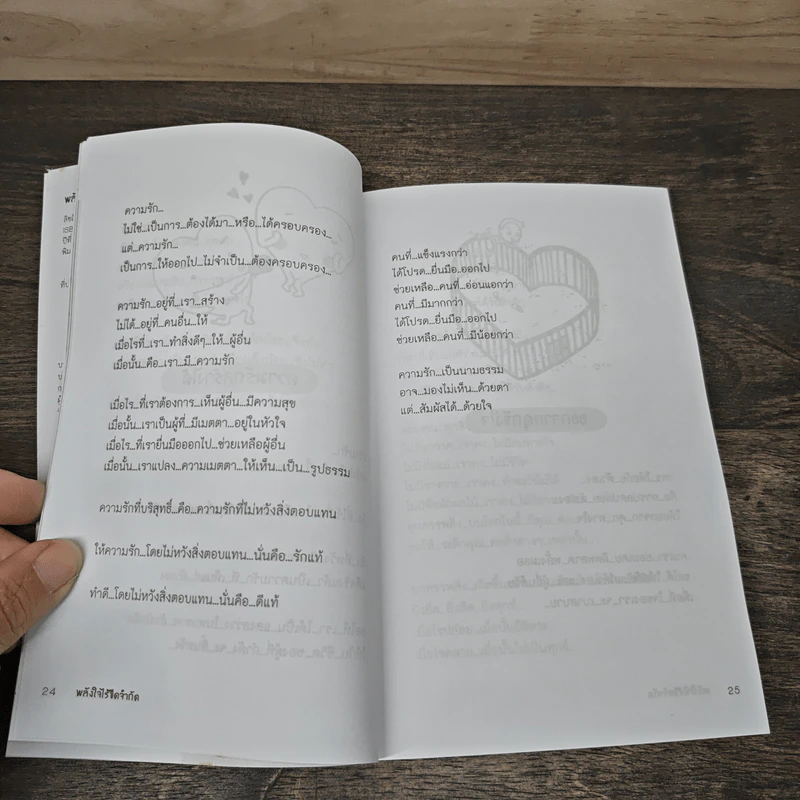 ความรัก...
ไม่ใช่...เป็นการ...ต้องได้มา...หรือ...ได้ครอบครอง...
แต่...ความรัก...
เป็นการ...ให้ออกไป...ไม่จำเป็น...ต้องครอบครอง...
ความรัก...อยู่ที่...เรา...สร้าง
ไม่ได้...อยู่ที่...คนอื่น...ให้
เมื่อไรที่...เรา...ทำสิ่งดีๆ...ให้...ผู้อื่น
เมื่อนั้น...คือ...เรา...มี...ความรัก
เมื่อไร...ที่เราต้องการ...เห็นผู้อื่น...มีความสุข
เมื่อนั้น...เราเป็นผู้ที่...มีเมตตา...อยู่ในหัวใจ
เมื่อไร...ที่เรายื่นมือออกไป...ช่วยเหลือผู้อื่น
เมื่อนั้น...เราแปลง...ความเมตตา...ให้เห็น...เป็น...รูปธรรม
ความรักที่บริสุทธิ์...คือ...ความรักที่ไม่หวังสิ่งตอบแทน
ให้ความรัก...โดยไม่หวังสิ่งตอบแทน...นั่นคือ...รักแท้
ทำดี...โดยไม่หวังสิ่งตอบแทน...นั่นคือ...ดีแท้
24 พลังใจไร้ขีดจำกัด
คนที่...แข็งแรงกว่า
ได้โปรด...ยื่นมือ...ออกไป
ช่วยเหลือ...คนที่...อ่อนแอกว่า
คนที่...มีมากกว่า
ได้โปรด...ยื่นมือ...ออกไป
ช่วยเหลือ...คนที่...มีน้อยกว่า
ความรัก...เป็นนามธรรม
อาจ...มองไม่เห็น...ด้วยตา
แต่...สัมผัสได้...ด้วยใจ
25